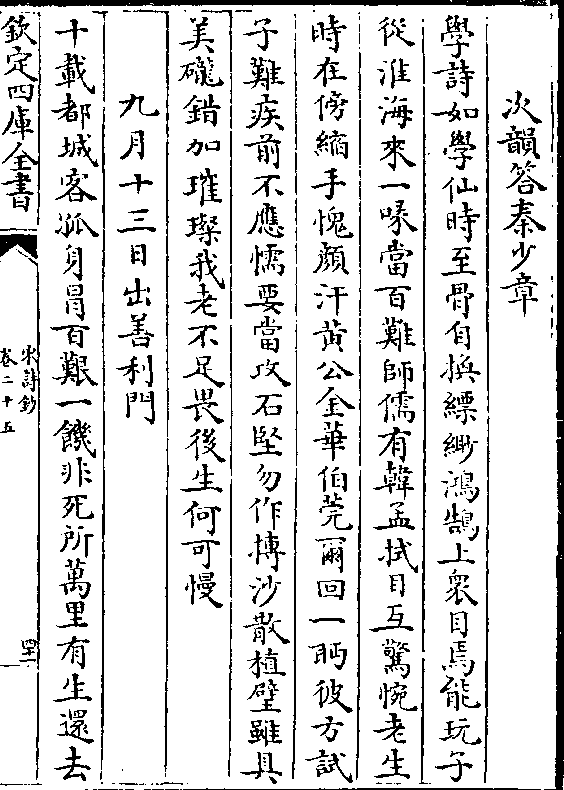 次韻答秦少章
學詩如學仙時至骨自換縹緲鴻鵠上衆目焉能玩子
從淮海來一喙當百難師儒有韓孟拭目互驚惋老生
時在傍縮手愧顏汗黃公金華伯莞爾回一眄彼方試
子難疾前不應懦要當攻石堅勿作摶沙散植璧雖具
美礲錯加璀璨我老不足畏後生何可慢
九月十三日出善利門
十載都城客孤身冒百艱一饑非死所萬里有生還去
欽定四庫全書
宋詩鈔
卷二十五